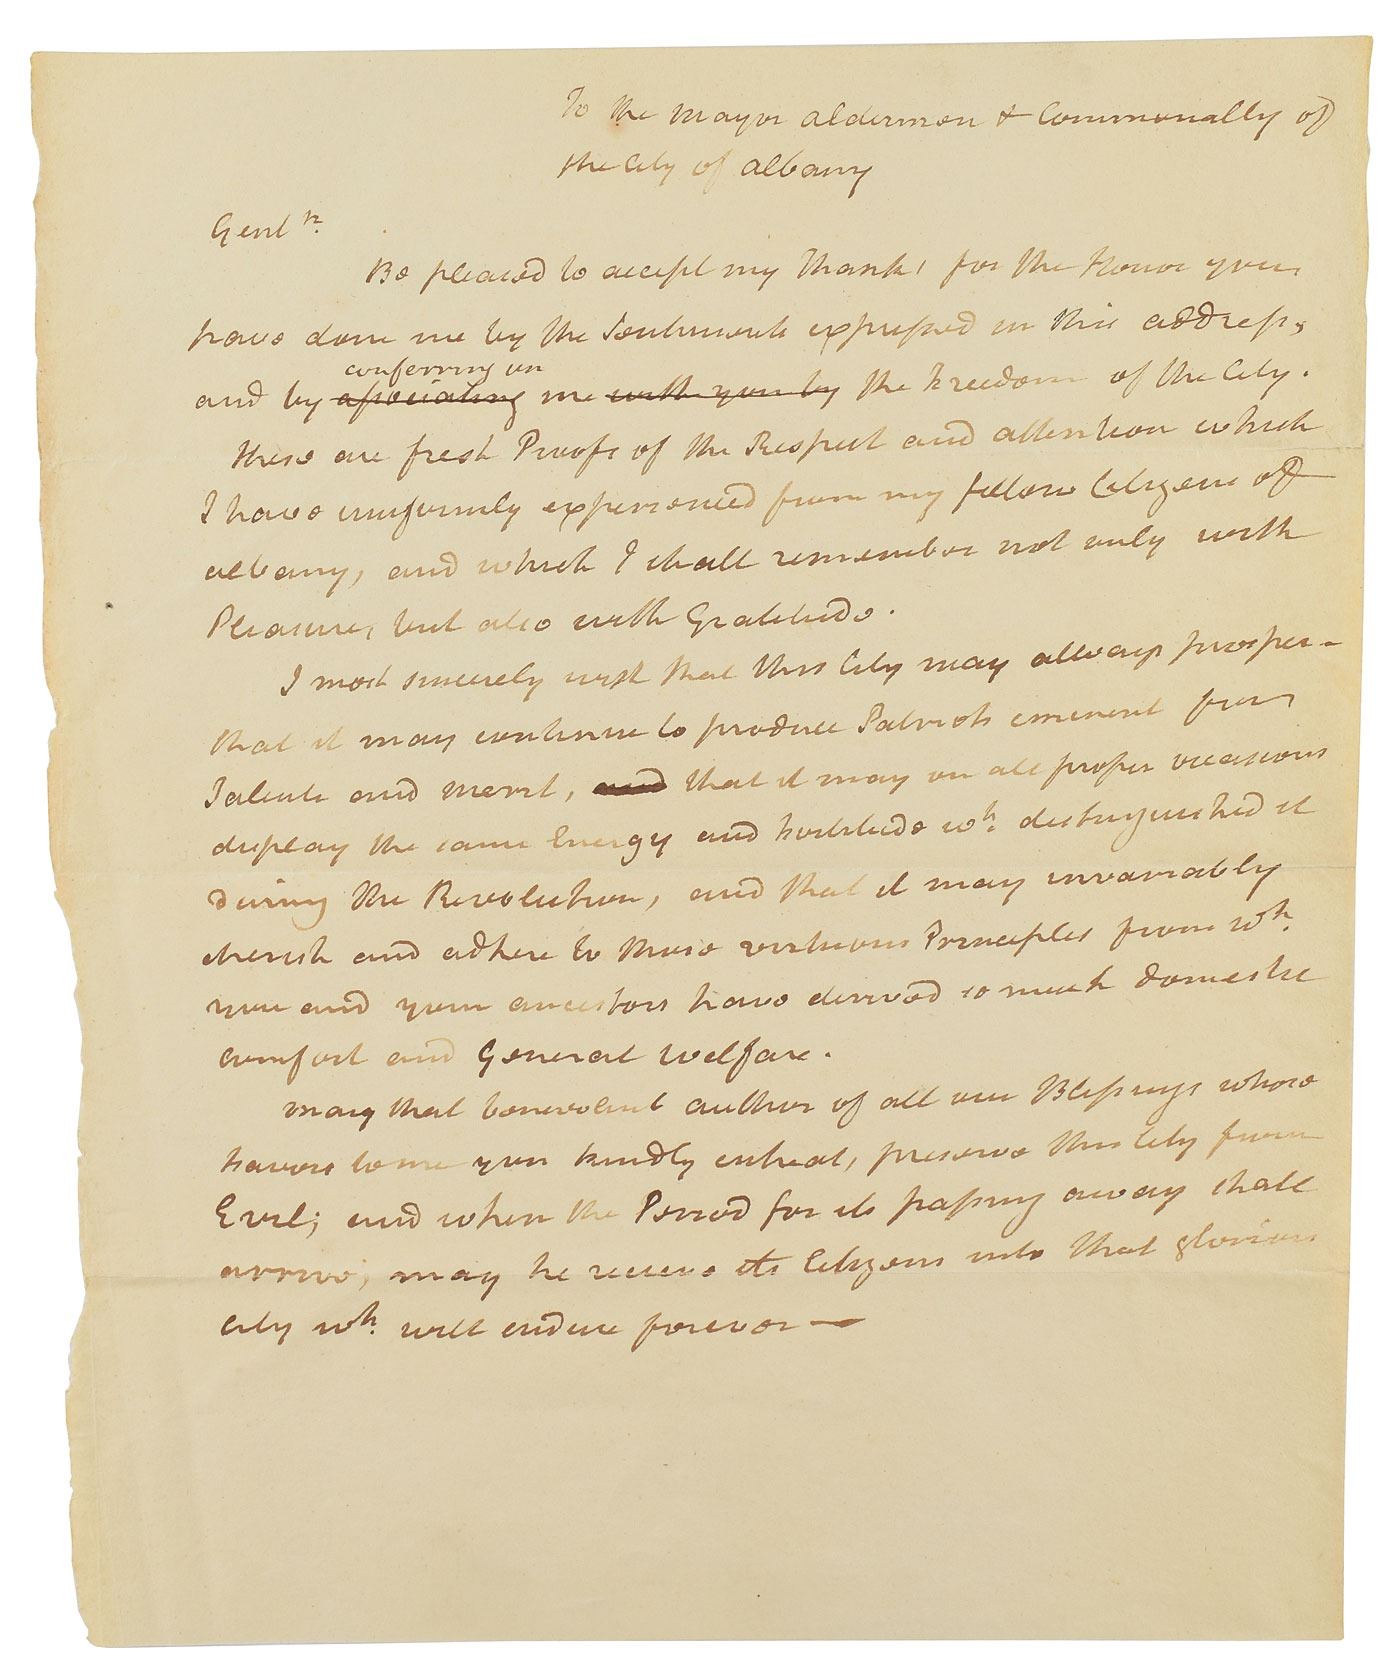 To the Mayor Aldermen & Commonalty of
the City of Albany
Gentn.
Be pleased to accept my Thanks for the Honor you
have done me by the Sentiments expressed in this address,
conferring on
and by associating me with you by the Freedom of the City.
These are fresh Proofs of the Respect and attention which
I have uniformly experienced from my fellow Citizens of
albany, and which I shall remember not only with
Pleasure, but also with Gratitude.
I most sincerely wish that this City may allways prosper -
that it may continue to produce Patriots eminent for
Talents and Merit, and that it may on all proper occasions
display the same Energy and fortitude wh. distinguished it
during the Revolution, and that it may invariably
cherish and adhere to those virtuous Principles from wh.
you and your ancestors have derived so much domestic
comfort and General welfare.
May that benevolent author of all our Blessings whose
favors to me you kindly entreat, preserve this City from
Evil; and when the Period for its passing away shall
arrive, may he recieve its Citizens into that glorious
City wh. will endure forever —